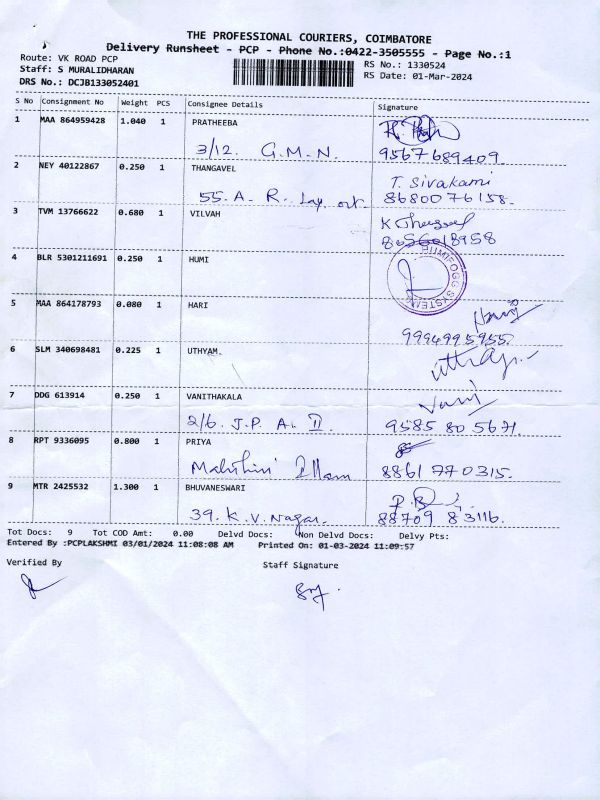 THE PROFESSIONAL COURIERS, COIMBATORE
Delivery Runsheet - PCP - Phone No.:0422-3505555 - Page No.:1
Route: VK ROAD PCP
Staff: S MURALIDHARAN
DRS No.: DCJB133052401
RS No.: 1330524
RS Date: 01-Mar-2024
S No Consignment No Weight PCS Consignee Details Signature
1 MAA 864959428 1.040 1 PRATHEEBA
3/12. G.M.N. 9567689409.
2 NEY 40122867 0.250 1 THANGAVEL T. Sivakami
55. A. R. Lay out. 8680076158.
3 TVM 13766622 0.680 1 VILVAH
8656018958
4 BLR 5301211691 0.250 1 HUMI HUMIFOGG SYSTEMS
5 MAA 864178793 0.080 1 HARI Hari
9994995955.
6 SLM 340698481 0.225 1 UTHYAM.
7 DDG 613914 0.250 1 VANITHAKALA Vani
2/6. J.P. A. II. 9585 80 5671.
8 RPT 9336095 0.800 1 PRIYA
Illam 8861 770315.
9 MTR 2425532 1.300 1 BHUVANESWARI
39. K.V. Nagar. 88709 83116.
Tot Docs: 9 Tot COD Amt: 0.00 Delvd Docs: Non Delvd Docs: Delvy Pts:
Entered By :PCPLAKSHMI 03/01/2024 11:08:08 AM Printed On: 01-03-2024 11:09:57
Verified By Staff Signature